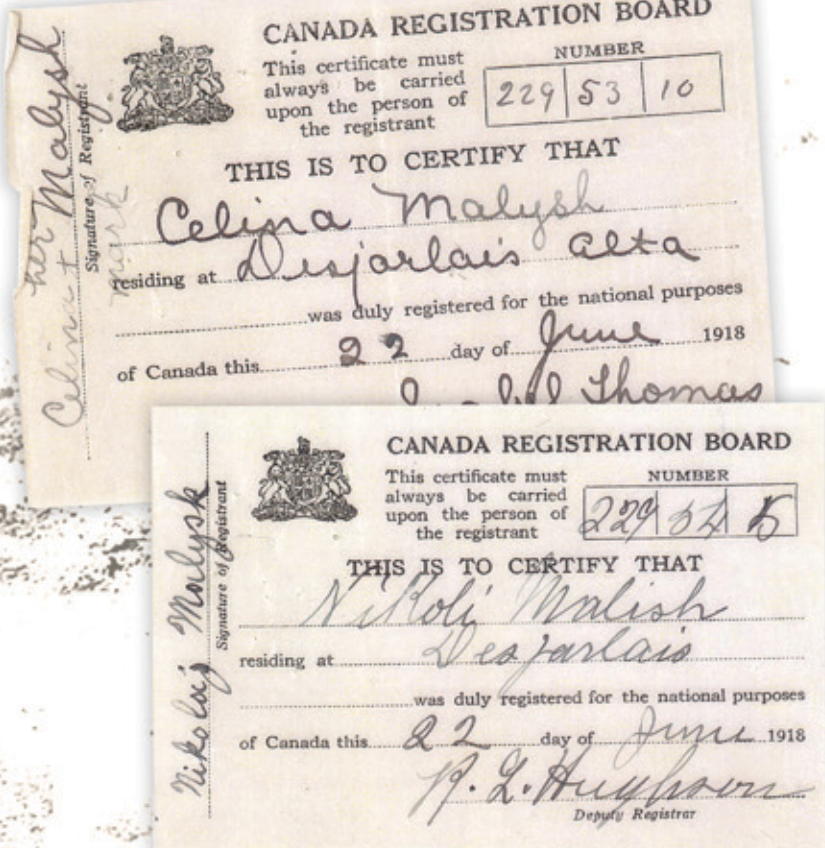 CANADA REGISTRATION BOARD
This certificate must
always be carried
upon the person of
the registrant
NUMBER
229 53 10
THIS IS TO CERTIFY THAT
Celina Malysh
residing at Desjarlais Alta
was duly registered for the national purposes
of Canada this 22 day of June 1918
Thomas
Celina + Malysh
her
mark
Signature of Registrant
CANADA REGISTRATION BOARD
This certificate must
always be carried
upon the person of
the registrant
NUMBER
229 54 5
THIS IS TO CERTIFY THAT
Nikoli Malish
residing at Desjarlais
was duly registered for the national purposes
of Canada this 22 day of June 1918
R. L. Hughson
Deputy Registrar
Nikolaj Malysk
Signature of Registrant